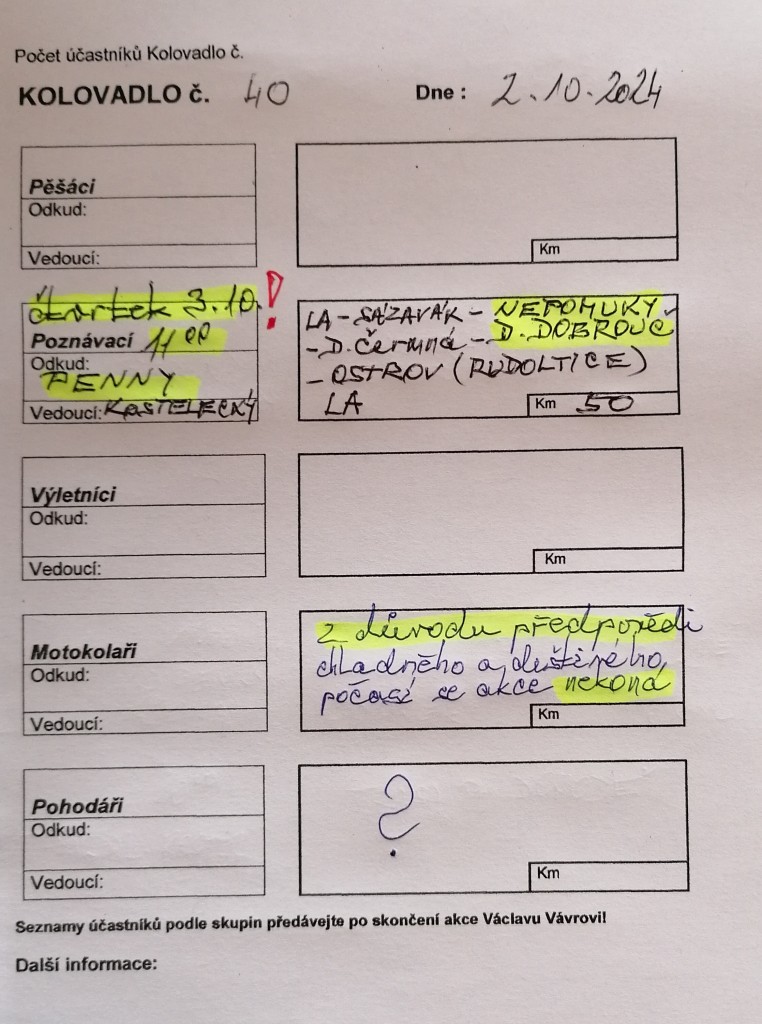 Počet účastníků Kolovadlo č.
KOLOVADLO č. 40 Dne : 2.10.2024
Pěšáci
Odkud:
Vedoucí:
Km
čtvrtek 3.10. !
Poznávací 11 00
Odkud:
PENNY
Vedoucí: KOSTELECKÝ
LA - SÁZAVÁK - NEPOMUKY -
- D. Čermná - D. DOBROUČ
- OSTROV (RUDOLTICE)
LA
Km 50
Výletníci
Odkud:
Vedoucí:
Km
Motokolaři
Odkud:
Vedoucí:
z důvodu předpovědi
chladného a deštivého
počasí se akce nekoná
Km
Pohodáři
Odkud:
Vedoucí:
?
Km
Seznamy účastníků podle skupin předávejte po skončení akce Václavu Vávrovi!
Další informace: